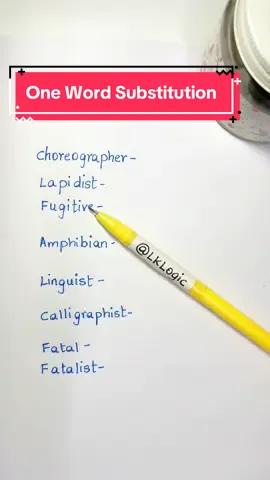 One Word Substitution
Choreographer-
Lapidist-
Fugitive-
Amphibian-
@LKLogic
Linguist -
Calligraphist-
Fatal -
Fatalist-